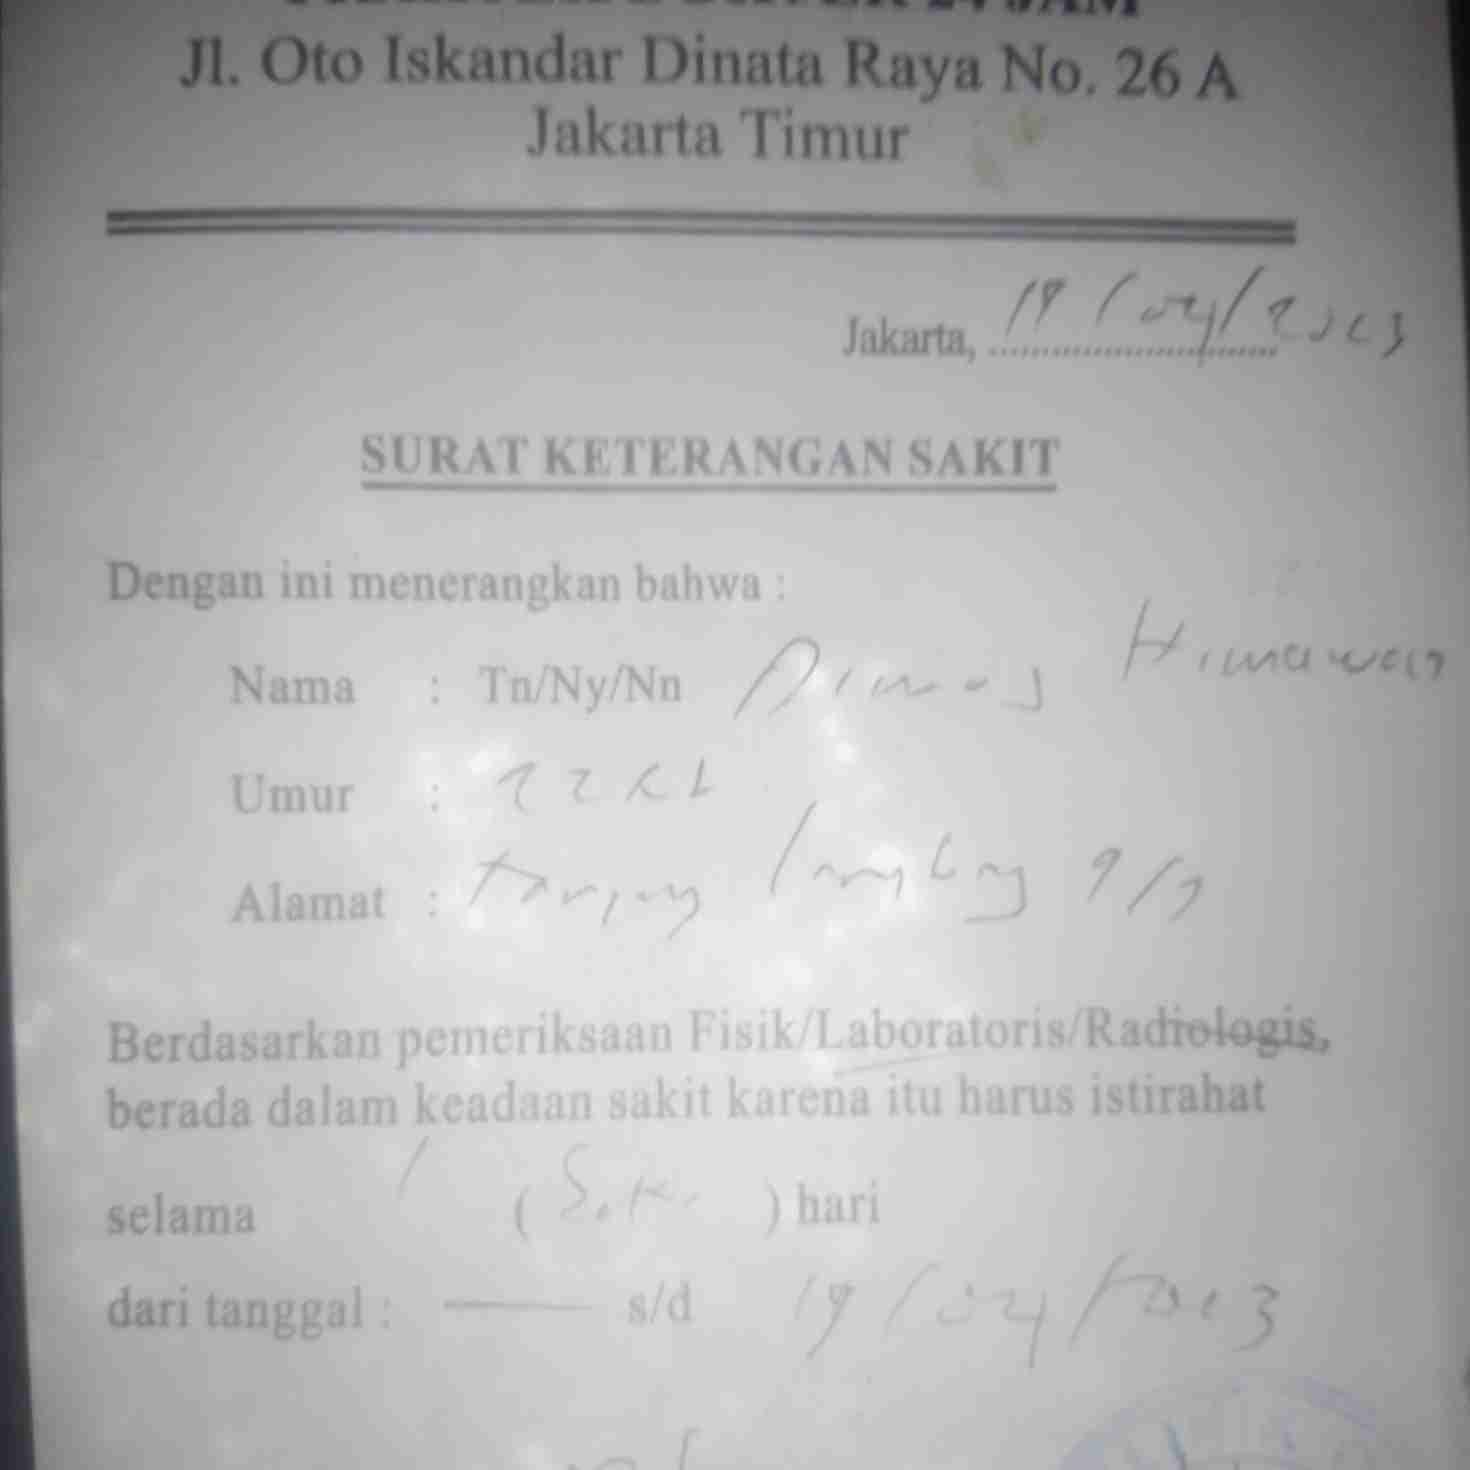 24 JAM
Jl. Oto Iskandar Dinata Raya No. 26 A
Jakarta Timur
Jakarta, 19/04/2013
SURAT KETERANGAN SAKIT
Dengan ini menerangkan bahwa :
Nama : Tn/Ny/Nn Dimas Himawan
Umur :
Alamat :
Berdasarkan pemeriksaan Fisik/Laboratoris/Radiologis,
berada dalam keadaan sakit karena itu harus istirahat
selama 1 ( ) hari
dari tanggal : — s/d 19/04/2013